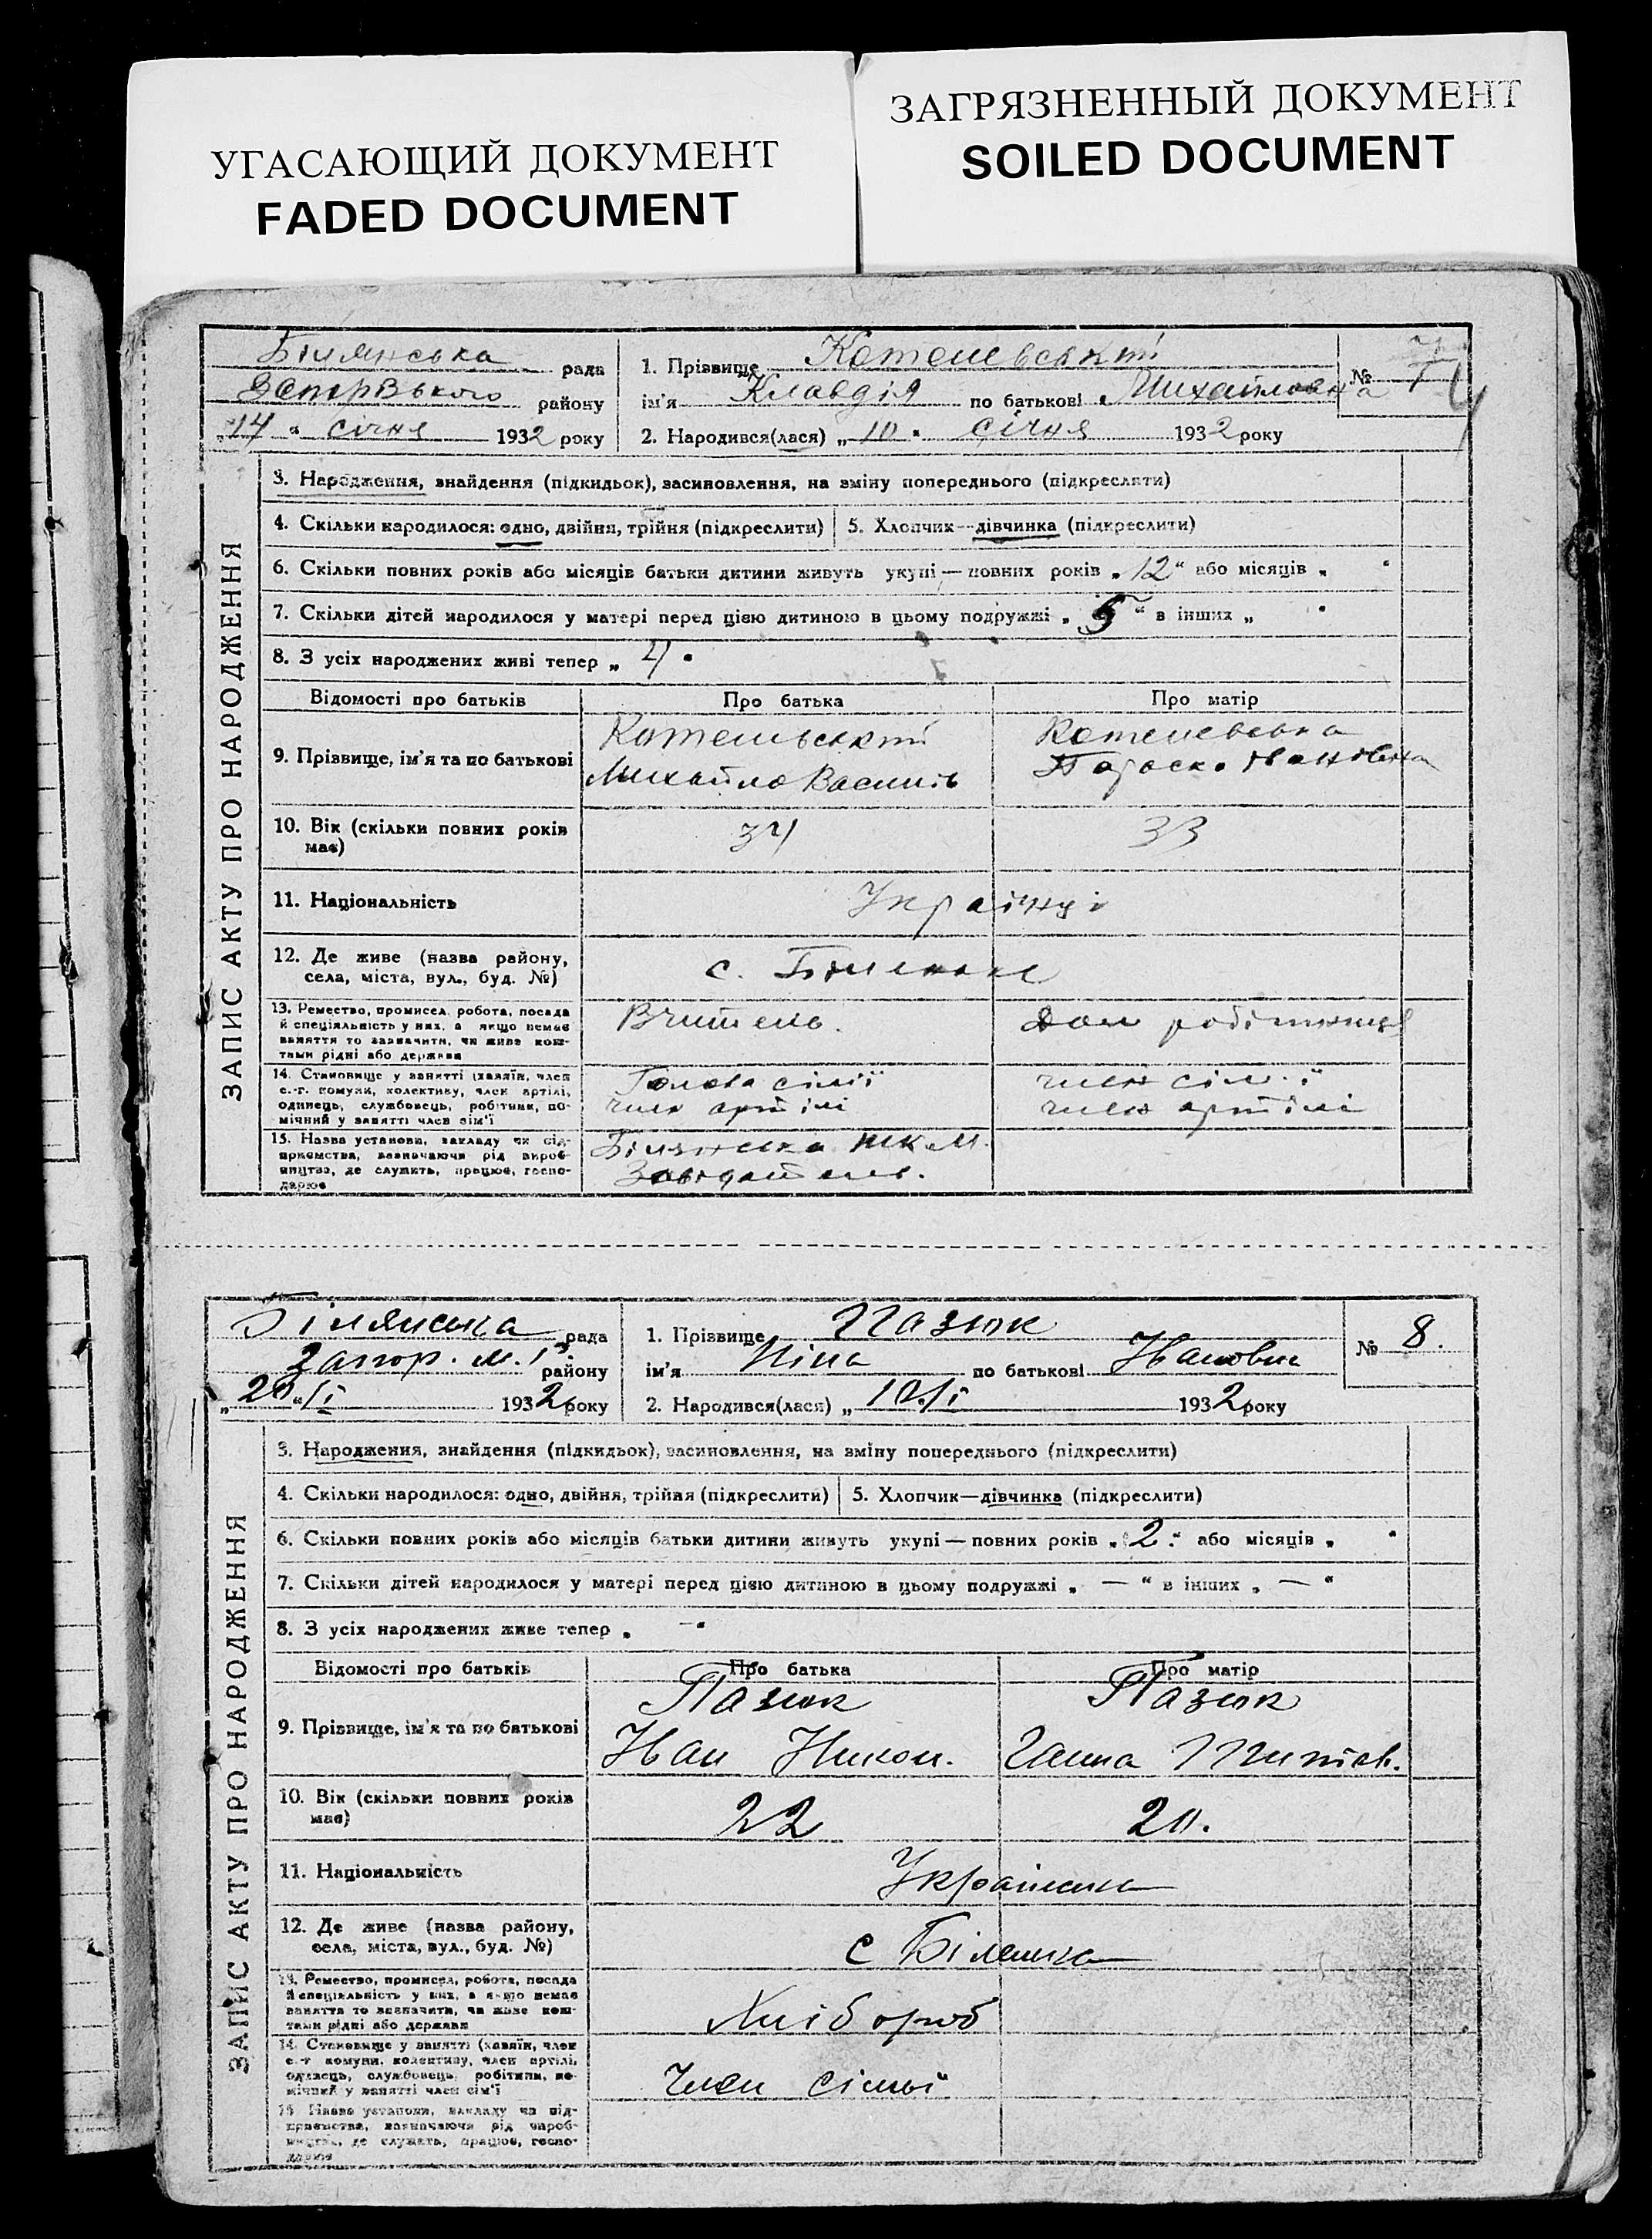 УГАСАЮЩИЙ ДОКУМЕНТ
FADED DOCUMENT
ЗАГРЯЗНЕННЫЙ ДОКУМЕНТ
SOILED DOCUMENT
ЗАПИС АКТУ ПРО НАРОДЖЕННЯ
Білянська рада
району
„14“ січня 1932 року
1. Прізвище
ім'я Клавдія по батькові Михайловна
2. Народився(лася) „10“ січня 1932 року
№ 7
3. Народження, знайдення (підкидьок), засиновлення, на зміну попереднього (підкреслити)
4. Скільки народилося: одно, двійня, трійня (підкреслити)
5. Хлопчик—дівчинка (підкреслити)
6. Скільки повних років або місяців батьки дитини живуть укупі — повних років „12“ або місяців „ “
7. Скільки дітей народилося у матері перед цією дитиною в цьому подружжі „5“ в інших „ “
8. З усіх народжених живі тепер „4“
Відомості про батьків
Про батька
Про матір
9. Прізвище, ім'я та по батькові
Михайло Василь
10. Вік (скільки повних років має)
34
33
11. Національність
Українці
12. Де живе (назва району, села, міста, вул., буд. №)
с.
13. Ремество, промисел, робота, посада й спеціяльність у них, а якщо немає заняття то зазначити, чи живе коштами рідні або держави
Вчитель.
Дом робітниця
14. Становище у занятті (хазяїн, член с.-г. комуни, колективу, член артілі, одинець, службовець, робітник, помічний у занятті член сім'ї
Голова сімії
член артілі
член сім.ї
член артілі
15. Назва установи, закладу чи підприємства, зазначаючи рід виробництва, де служить, працює, господарює
Білянська ШКМ.
ЗАПИС АКТУ ПРО НАРОДЖЕННЯ
Білянська рада
Запор. м.р. району
„20“/I 1932 року
1. Прізвище Пазюк
ім'я Ніна по батькові Івановна
2. Народився(лася) „10/I 1932 року
№ 8.
3. Народження, знайдення (підкидьок), засиновлення, на зміну попереднього (підкреслити)
4. Скільки народилося: одно, двійня, трійня (підкреслити)
5. Хлопчик—дівчинка (підкреслити)
6. Скільки повних років або місяців батьки дитини живуть укупі — повних років „2.“ або місяців „ “
7. Скільки дітей народилося у матері перед цією дитиною в цьому подружжі „ — “ в інших „ — “
8. З усіх народжених живе тепер „ —“
Відомості про батьків
Про батька
Про матір
9. Прізвище, ім'я та по батькові
Пазюк
Іван Никон.
Пазюк
Ганна
10. Вік (скільки повних років має)
22
20.
11. Національність
12. Де живе (назва району, села, міста, вул., буд. №)
с
13. Ремество, промисел, робота, посада й спеціяльність у них, а якщо немає заняття то зазначити, чи живе коштами рідні або держави
Хлібороб
14. Становище у занятті (хазяїн, член с.-г. комуни, колективу, член артілі, одинець, службовець, робітник, помічний у занятті член сім'ї
Член сімьї
15. Назва установи, закладу чи підприємства, зазначаючи рід виробництва, де служить, працює, господарює